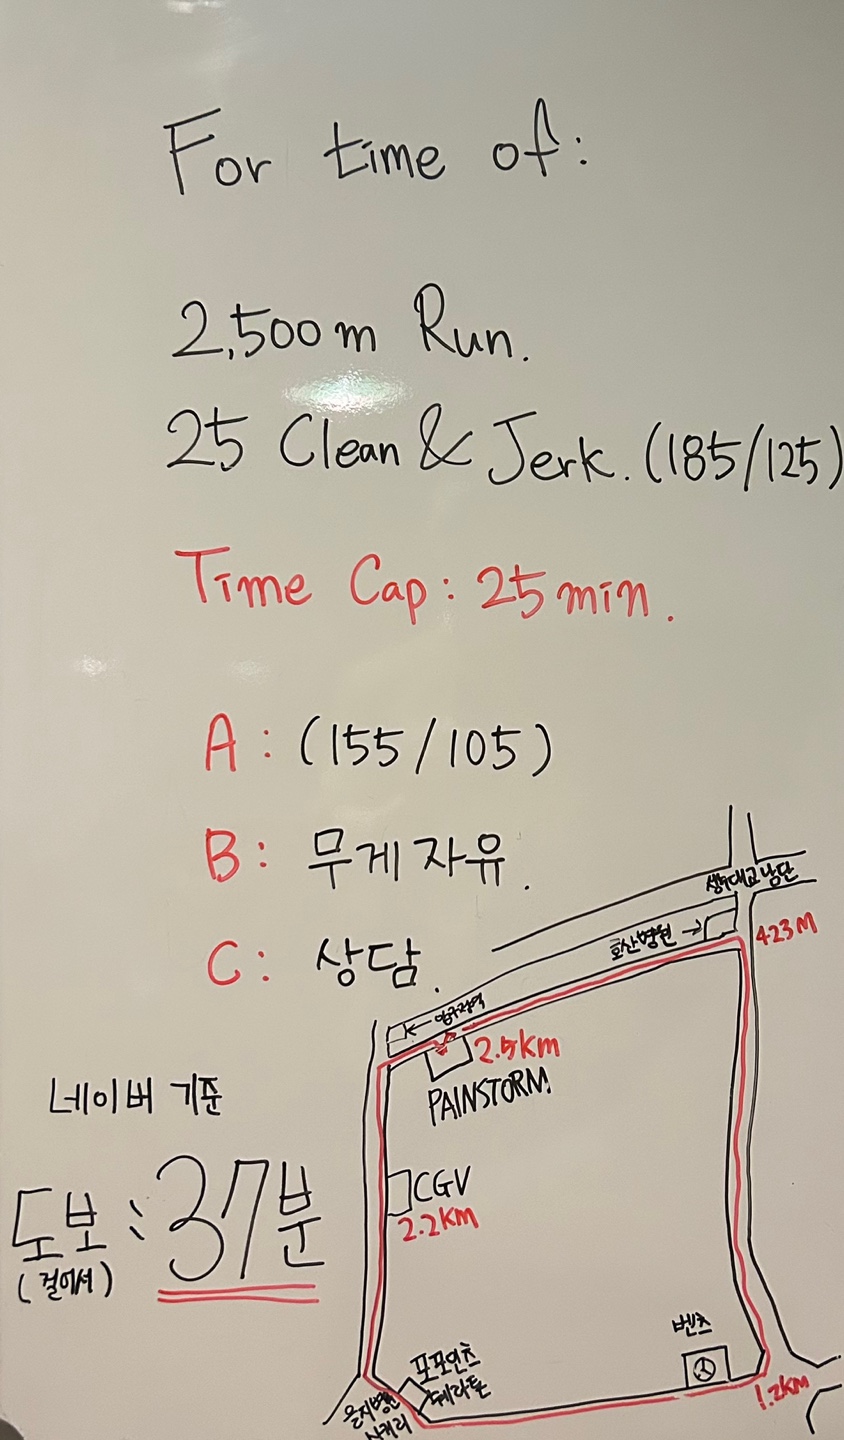 For time of:
2,500m Run.
25 Clean & Jerk. (185/125)
Time Cap: 25min.
A: (155/105)
B: 무게 자유.
C: 상담.
성수대교 남단
호산병원 →
423M
← 압구정역
2.5km
PAINSTORM
네이버 기준
CGV
2.2km
도보: 37분
(걸어서)
벤츠
1.2km
포포인츠
쉐라톤
을지병원
사거리